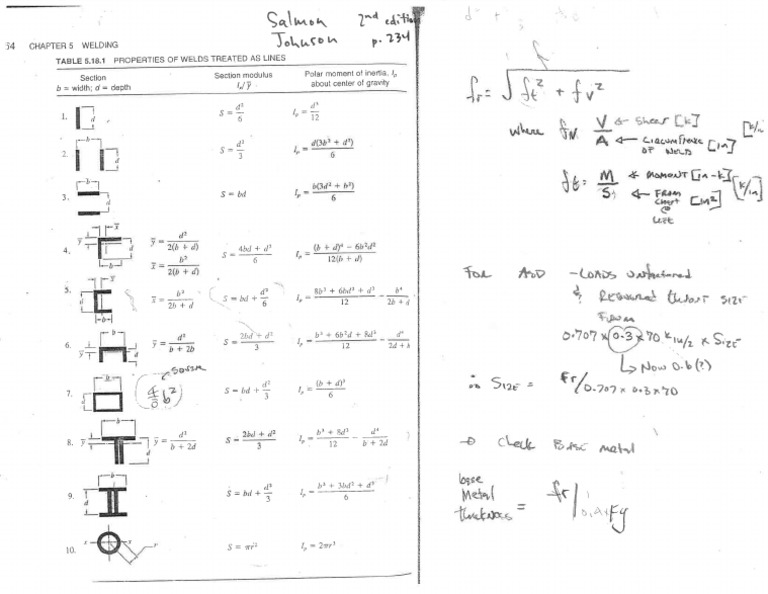 Salmon 2nd edition
Johnson p. 234
54 CHAPTER 5 WELDING
TABLE 5.18.1 PROPERTIES OF WELDS TREATED AS LINES
Section
b = width; d = depth
Section modulus
I_x/ȳ
Polar moment of inertia, I_p
about center of gravity
1. d S = d²/6 I_p = d³/12
2. b d S = d²/3 I_p = d(3b² + d²)/6
3. b d S = bd I_p = b(3d² + b²)/6
4. ȳ x̄ d b ȳ = d²/2(b + d) x̄ = b²/2(b + d) S = 4bd + d²/6 I_p = (b + d)⁴ − 6b²d²/12(b + d)
5. x̄ d b x̄ = b²/2b + d S = bd + d²/6 I_p = 8b³ + 6bd² + d³/12 − b⁴/2b + d
6. b ȳ d ȳ = d²/b + 2b S = 2bd + d²/3 I_p = b³ + 6b²d + 8d³/12 − d⁴/2d + b
7. b d 4/3 b² S = bd + d²/3 I_p = (b + d)³/6
8. b ȳ d ȳ = d²/b + 2d S = 2bd + d²/3 I_p = b³ + 8d³/12 − d⁴/b + 2d
9. b d S = bd + d²/3 I_p = b³ + 3bd² + d³/6
10. r S = πr² I_p = 2πr³
fr = √ft² + fv²
where fv V/A ← Shear [k] [k/in]
← CIRCUMFERENCE OF WELD [in]
ft = M/S ← MOMENT [in-k] [k/in]
← FROM CHART @ LEFT [in²]
FOR ASD - LOADS unfactored
& REQUIRED throat SIZE
FROM
0.707 x 0.3 x 70 k in/2 x SIZE
↳ Now 0.6 (?)
∴ SIZE = fr/0.707 x 0.3 x 70
→ check BASE metal
base
Metal
thickness = fr/0.4Fy